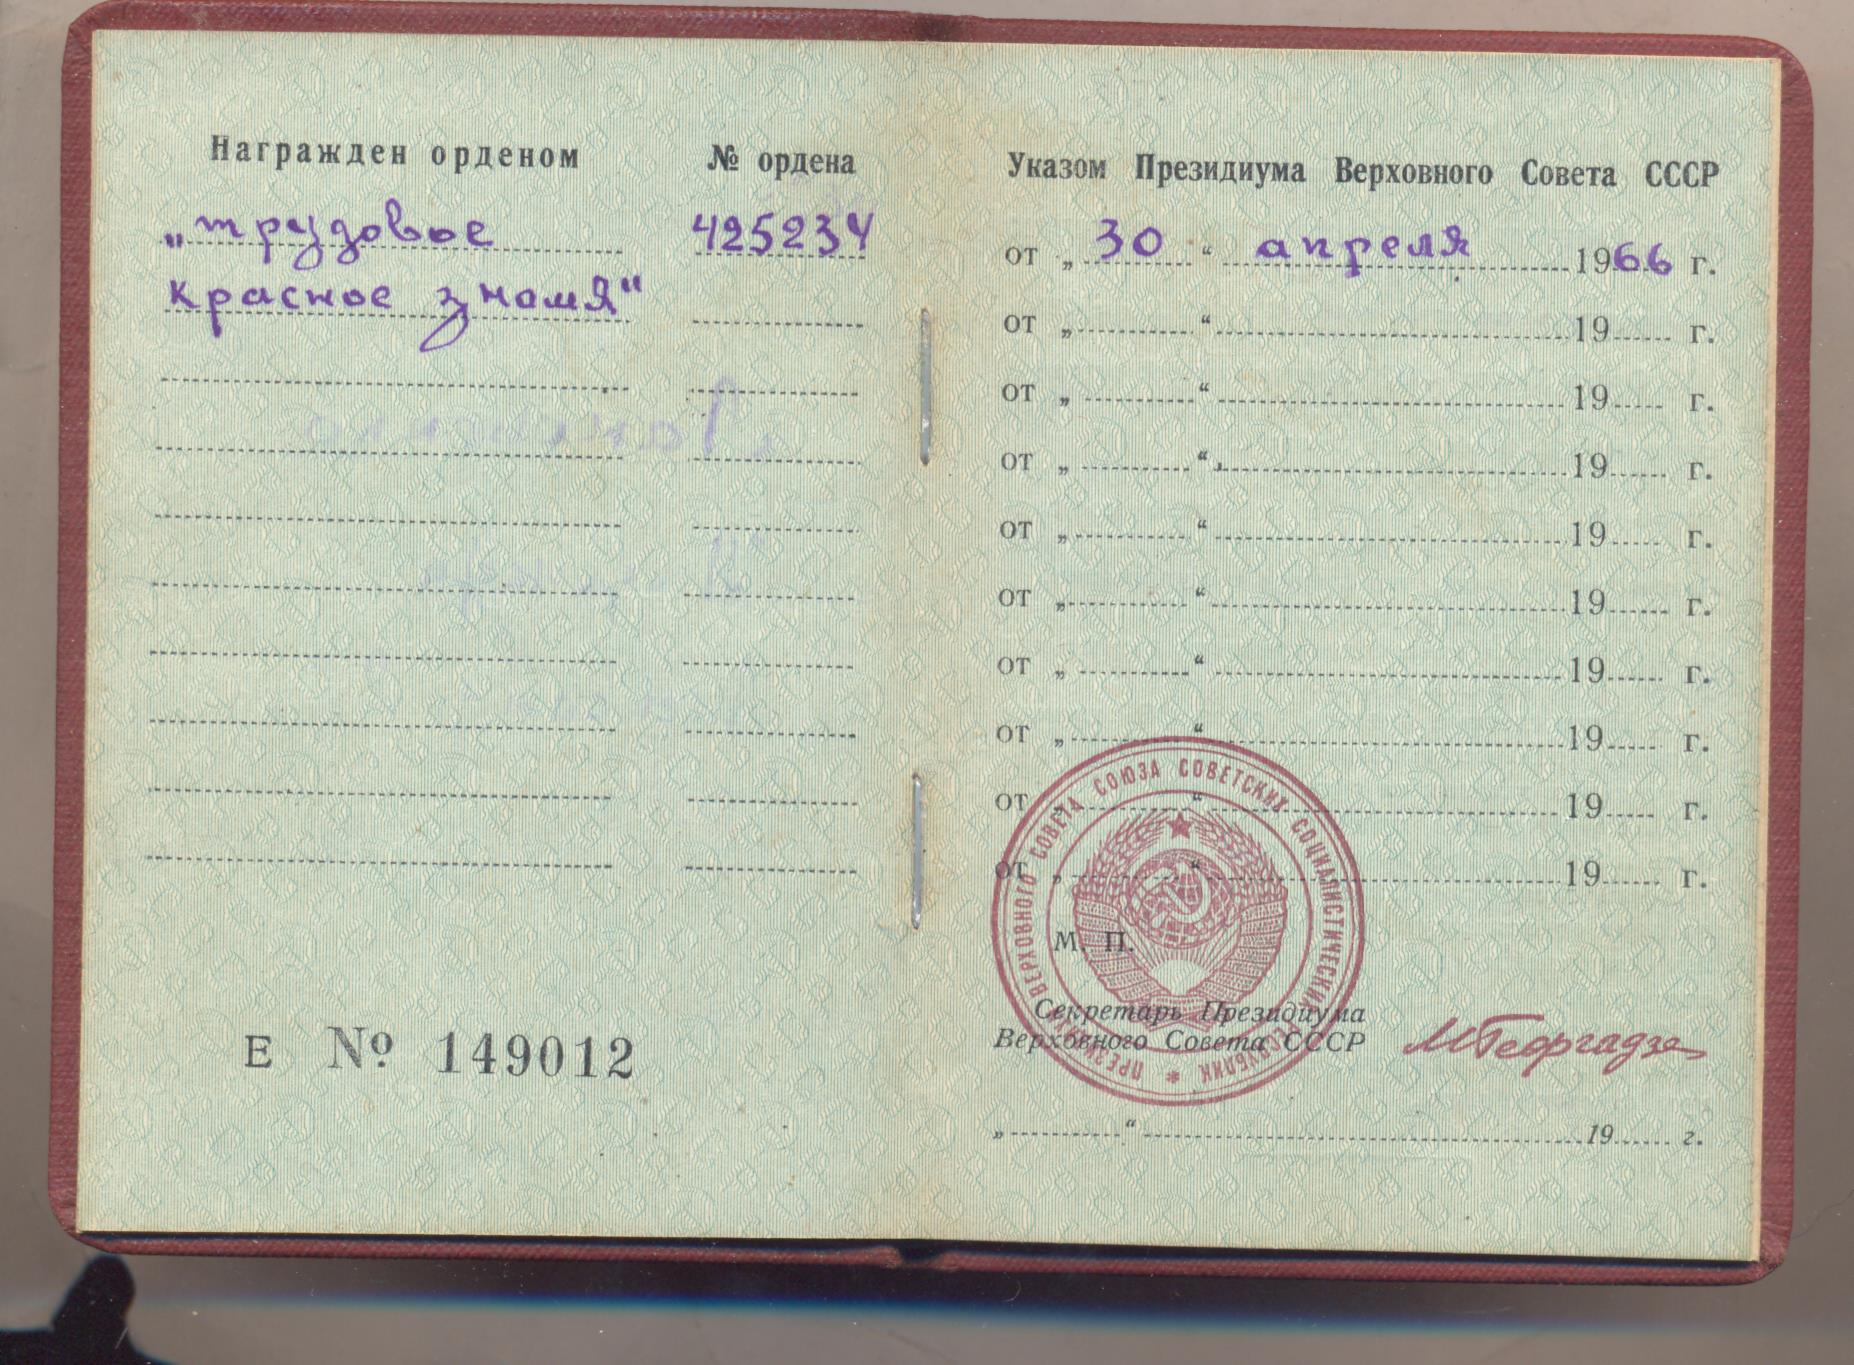 Награжден орденом № ордена
„трудовое 425234
красное знамя“
Е № 149012
Указом Президиума Верховного Совета СССР
от „ 30 “ апреля 1966 г.
от „ “ 19 г.
от „ “ 19 г.
от „ “ 19 г.
от „ “ 19 г.
от „ “ 19 г.
от „ “ 19 г.
от „ “ 19 г.
от „ “ 19 г.
от „ “ 19 г.
М. П.
ПРЕЗИДИУМ ВЕРХОВНОГО СОВЕТА СОЮЗА СОВЕТСКИХ СОЦИАЛИСТИЧЕСКИХ РЕСПУБЛИК *
Секретарь Президиума
Верховного Совета СССР
МГеоргадзе
„ “ 19 г.